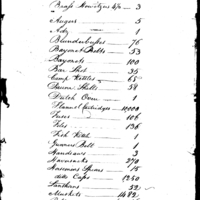 Brass Howitzers 4/5 — 3
Augers — 5
Adz — 1
Blunderbusses — 76
Bayonet Belts — 53
Bayonets — 100
Bar Shot — 35
Camp Kettles — 65
Dutch Oven — 1
Flannel Cartridges — 10000
Fuses — 106
Files — 136
Fish Kettle — 1
Gunners Belt — 1
Handsaws — 3
Haversacks — 270
Harness — 15
ditto Caps — 1240
Lanthorns — 32
Muskets